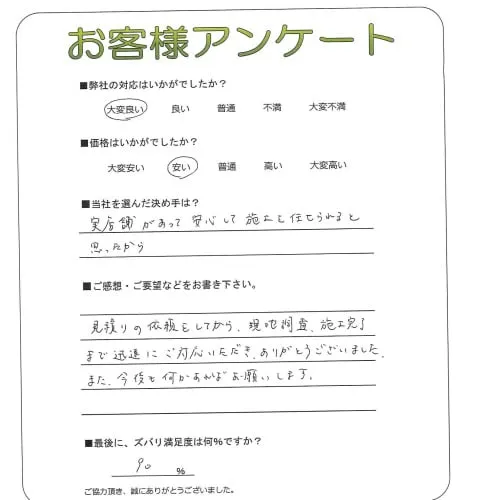 お客様アンケート
■弊社の対応はいかがでしたか？
大変良い 良い 普通 不満 大変不満
■価格はいかがでしたか？
大変安い 安い 普通 高い 大変高い
■当社を選んだ決め手は？
実店舗があって安心して施工を任せられると
思ったから
■ご感想・ご要望などをお書き下さい。
見積りの依頼をしてから、現地調査、施工完了
まで迅速にご対応いただき、ありがとうございました。
また、今後も何かあればお願いします。
■最後に、ズバリ満足度は何％ですか？
90 ％
ご協力頂き、誠にありがとうございました。